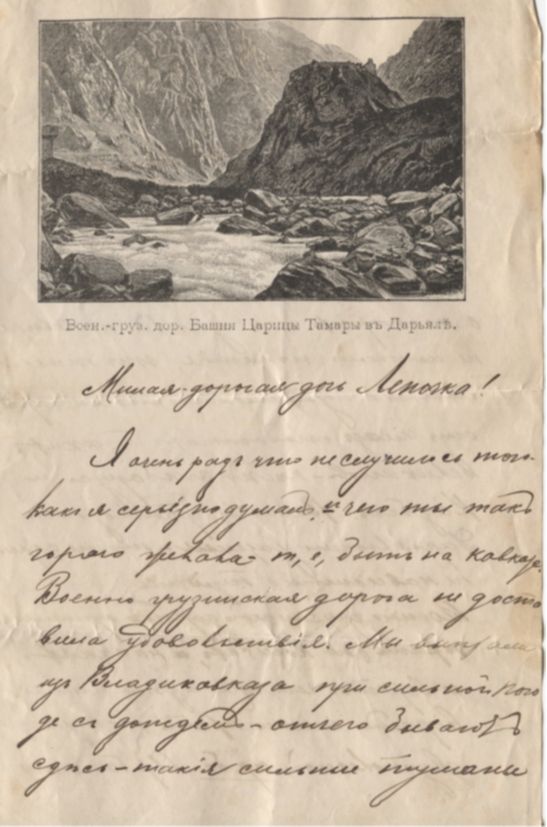 Воен.-груз. дор. Башня Царицы Тамары въ Дарьялѣ.
Милая дорогая дочь Леночка!
Я очень радъ что не случилось того
какъ я серьёзно думалъ, и чего ты такъ
горячо желала т, е, быть на кавказѣ.
Военно грузинская дорога не доста
вила удовольствія. Мы выѣхали
изъ Владикавказа при сильной пого
де съ дождемъ – отчего бываютъ
сдѣсь – такія сильные туманы